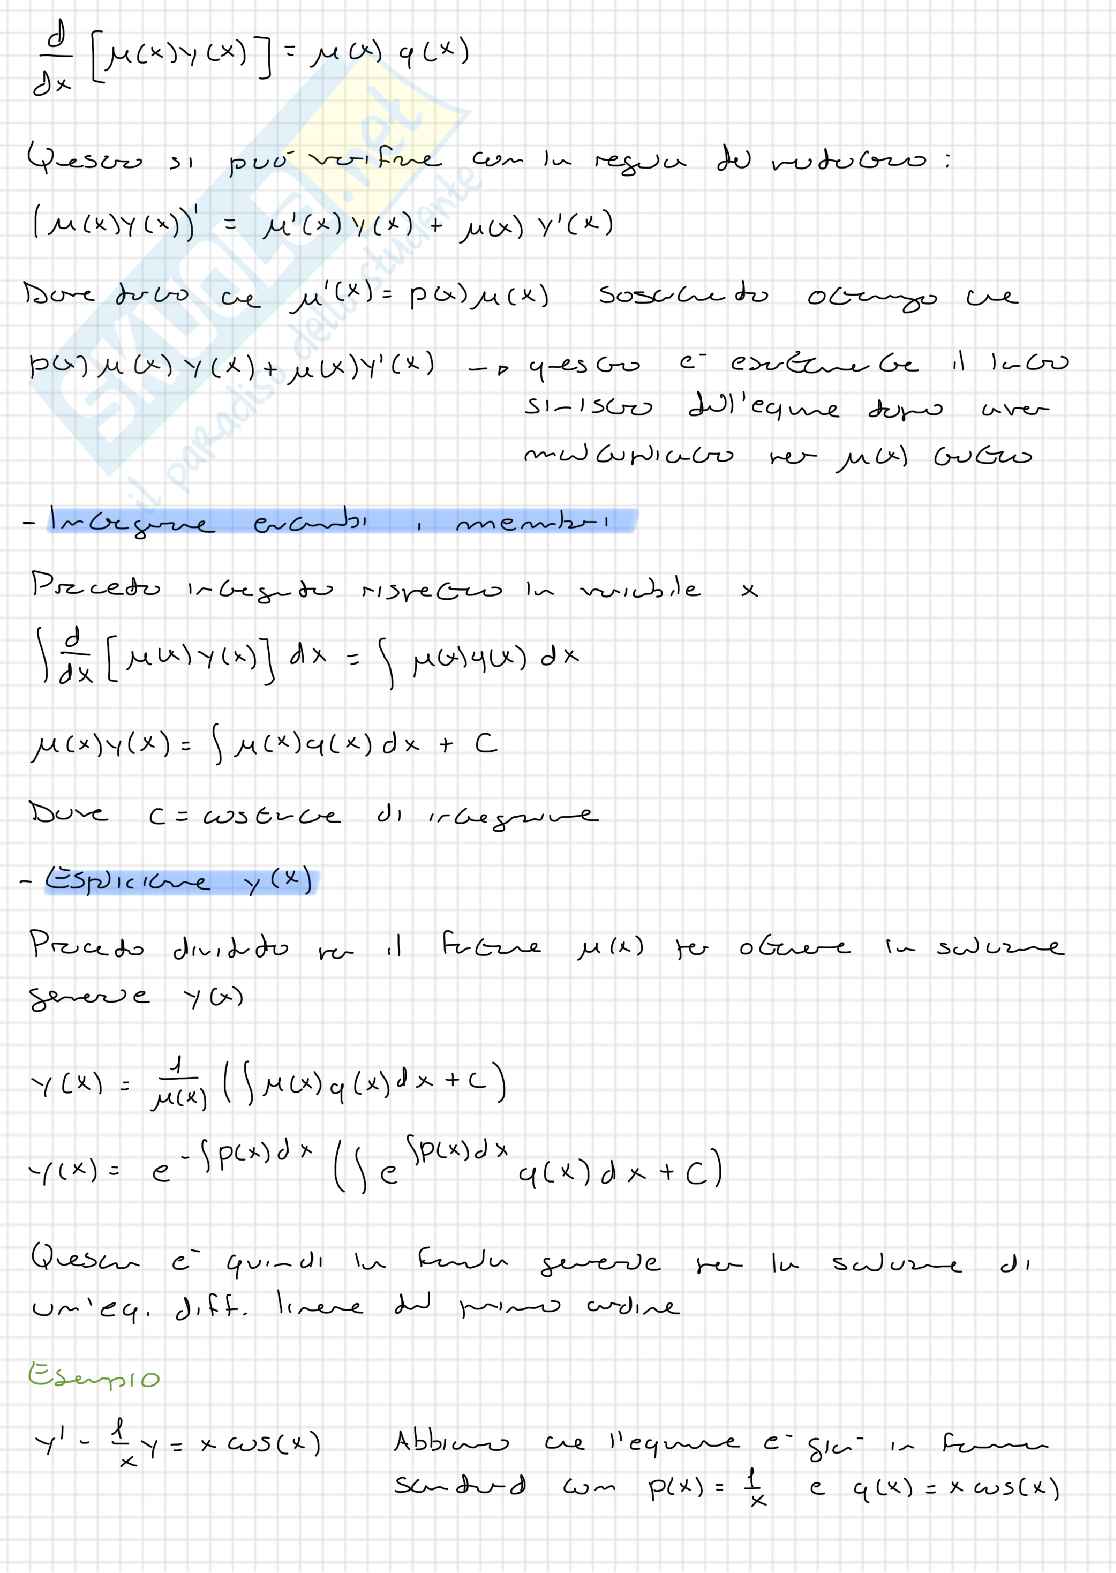 d/dx [μ(x)y(x)] = μ(x) q(x)
Questo si può verificare con la regola del prodotto:
(μ(x)y(x))' = μ'(x)y(x) + μ(x) y'(x)
Dove dato che μ'(x) = p(x)μ(x) sostituendo ottengo che
p(x)μ(x) y(x) + μ(x)y'(x) → questo è esattamente il lato
sinistro dell'equazione dopo aver
moltiplicato per μ(x) tutto
- Integrazione entrambi i membri
Procedo integrando rispetto la variabile x
∫ d/dx [μ(x)y(x)] dx = ∫ μ(x)q(x) dx
μ(x)y(x) = ∫ μ(x)q(x) dx + C
Dove C = costante di integrazione
- Esplicitare y(x)
Procedo dividendo per il fattore μ(x) per ottenere la soluzione
generale y(x)
y(x) = 1/μ(x) (∫ μ(x) q(x) dx + C)
y(x) = e^(-∫p(x)dx) (∫ e^(∫p(x)dx) q(x) dx + C)
Questa è quindi la formula generale per la soluzione di
un'eq. diff. lineare del primo ordine
Esempio
y' - 1/x y = x cos(x) Abbiamo che l'equazione è già in forma
standard con p(x) = 1/x e q(x) = x cos(x)
SKUOLA.net
il paradiso dello studente